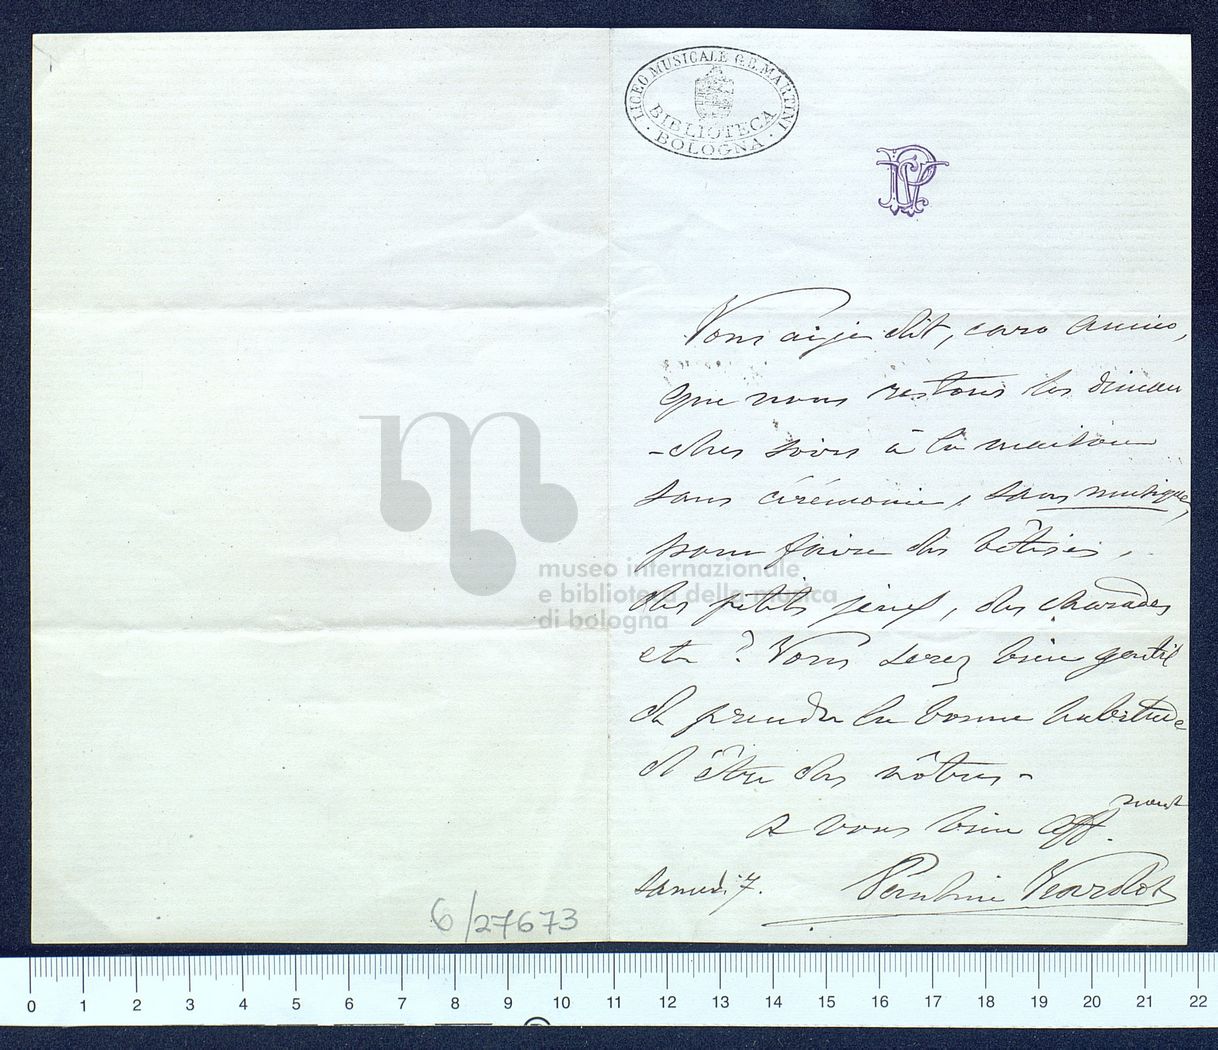 LICEO MUSICALE G.B. MARTINI
BIBLIOTECA
BOLOGNA
PV
Vous ai-je dit, caro amico,
que nous restons les diman
-ches soirs à la maison
sans cérémonie, sans musique,
pour faire des bêtises,
des petits jeux, des charades
etc ? Vous serez bien gentil
de prendre la bonne habitude
d'être des nôtres -
A vous bien aff.ment
Samedi 7.
Pauline Viardot
6/27673
museo internazionale
e biblioteca della musica
di bologna
0 1 2 3 4 5 6 7 8 9 10 11 12 13 14 15 16 17 18 19 20 21 22